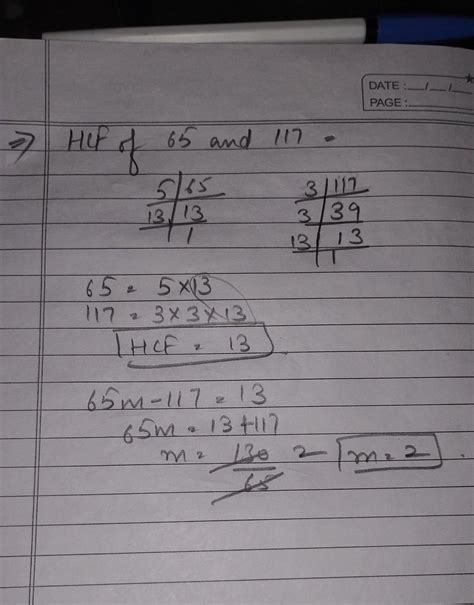 DATE : __/__/__
PAGE : ____
⇒ HCF of 65 and 117 =
5 | 65
13 | 13
1
3 | 117
3 | 39
13 | 13
1
65 = 5 × 13
117 = 3 × 3 × 13
HCF = 13
65m - 117 = 13
65m = 13 + 117
m = 130/65 = m = 2